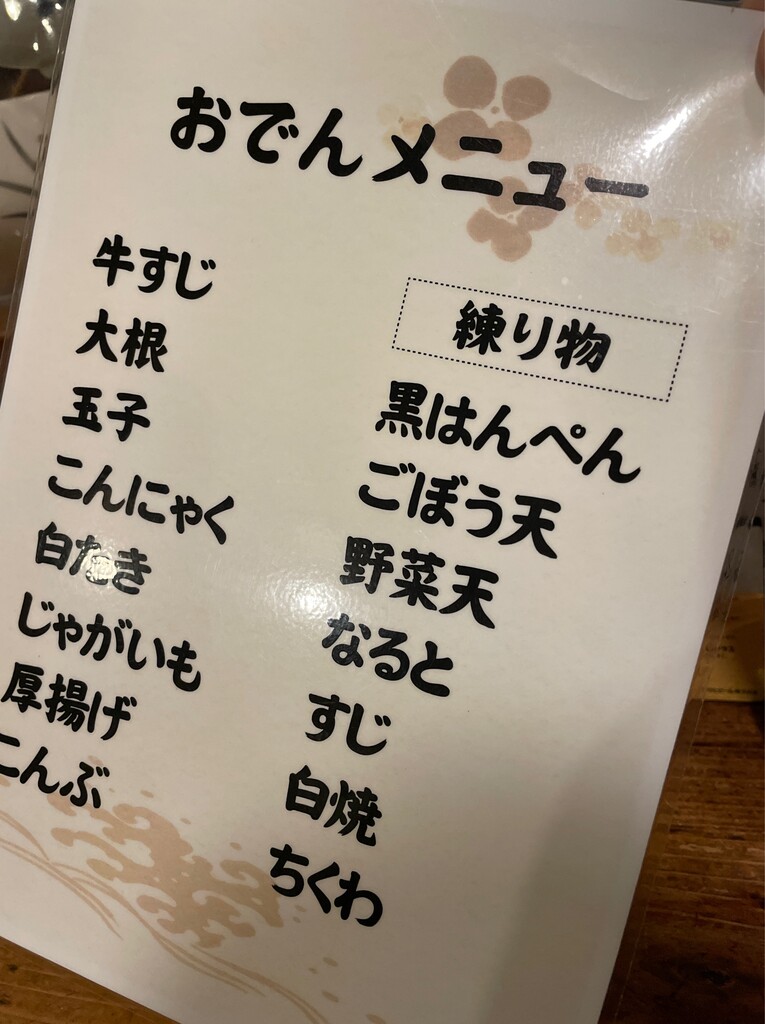 おでんメニュー
牛すじ
大根
玉子
こんにゃく
白たき
じゃがいも
厚揚げ
こんぶ
練り物
黒はんぺん
ごぼう天
野菜天
なると
すじ
白焼
ちくわ